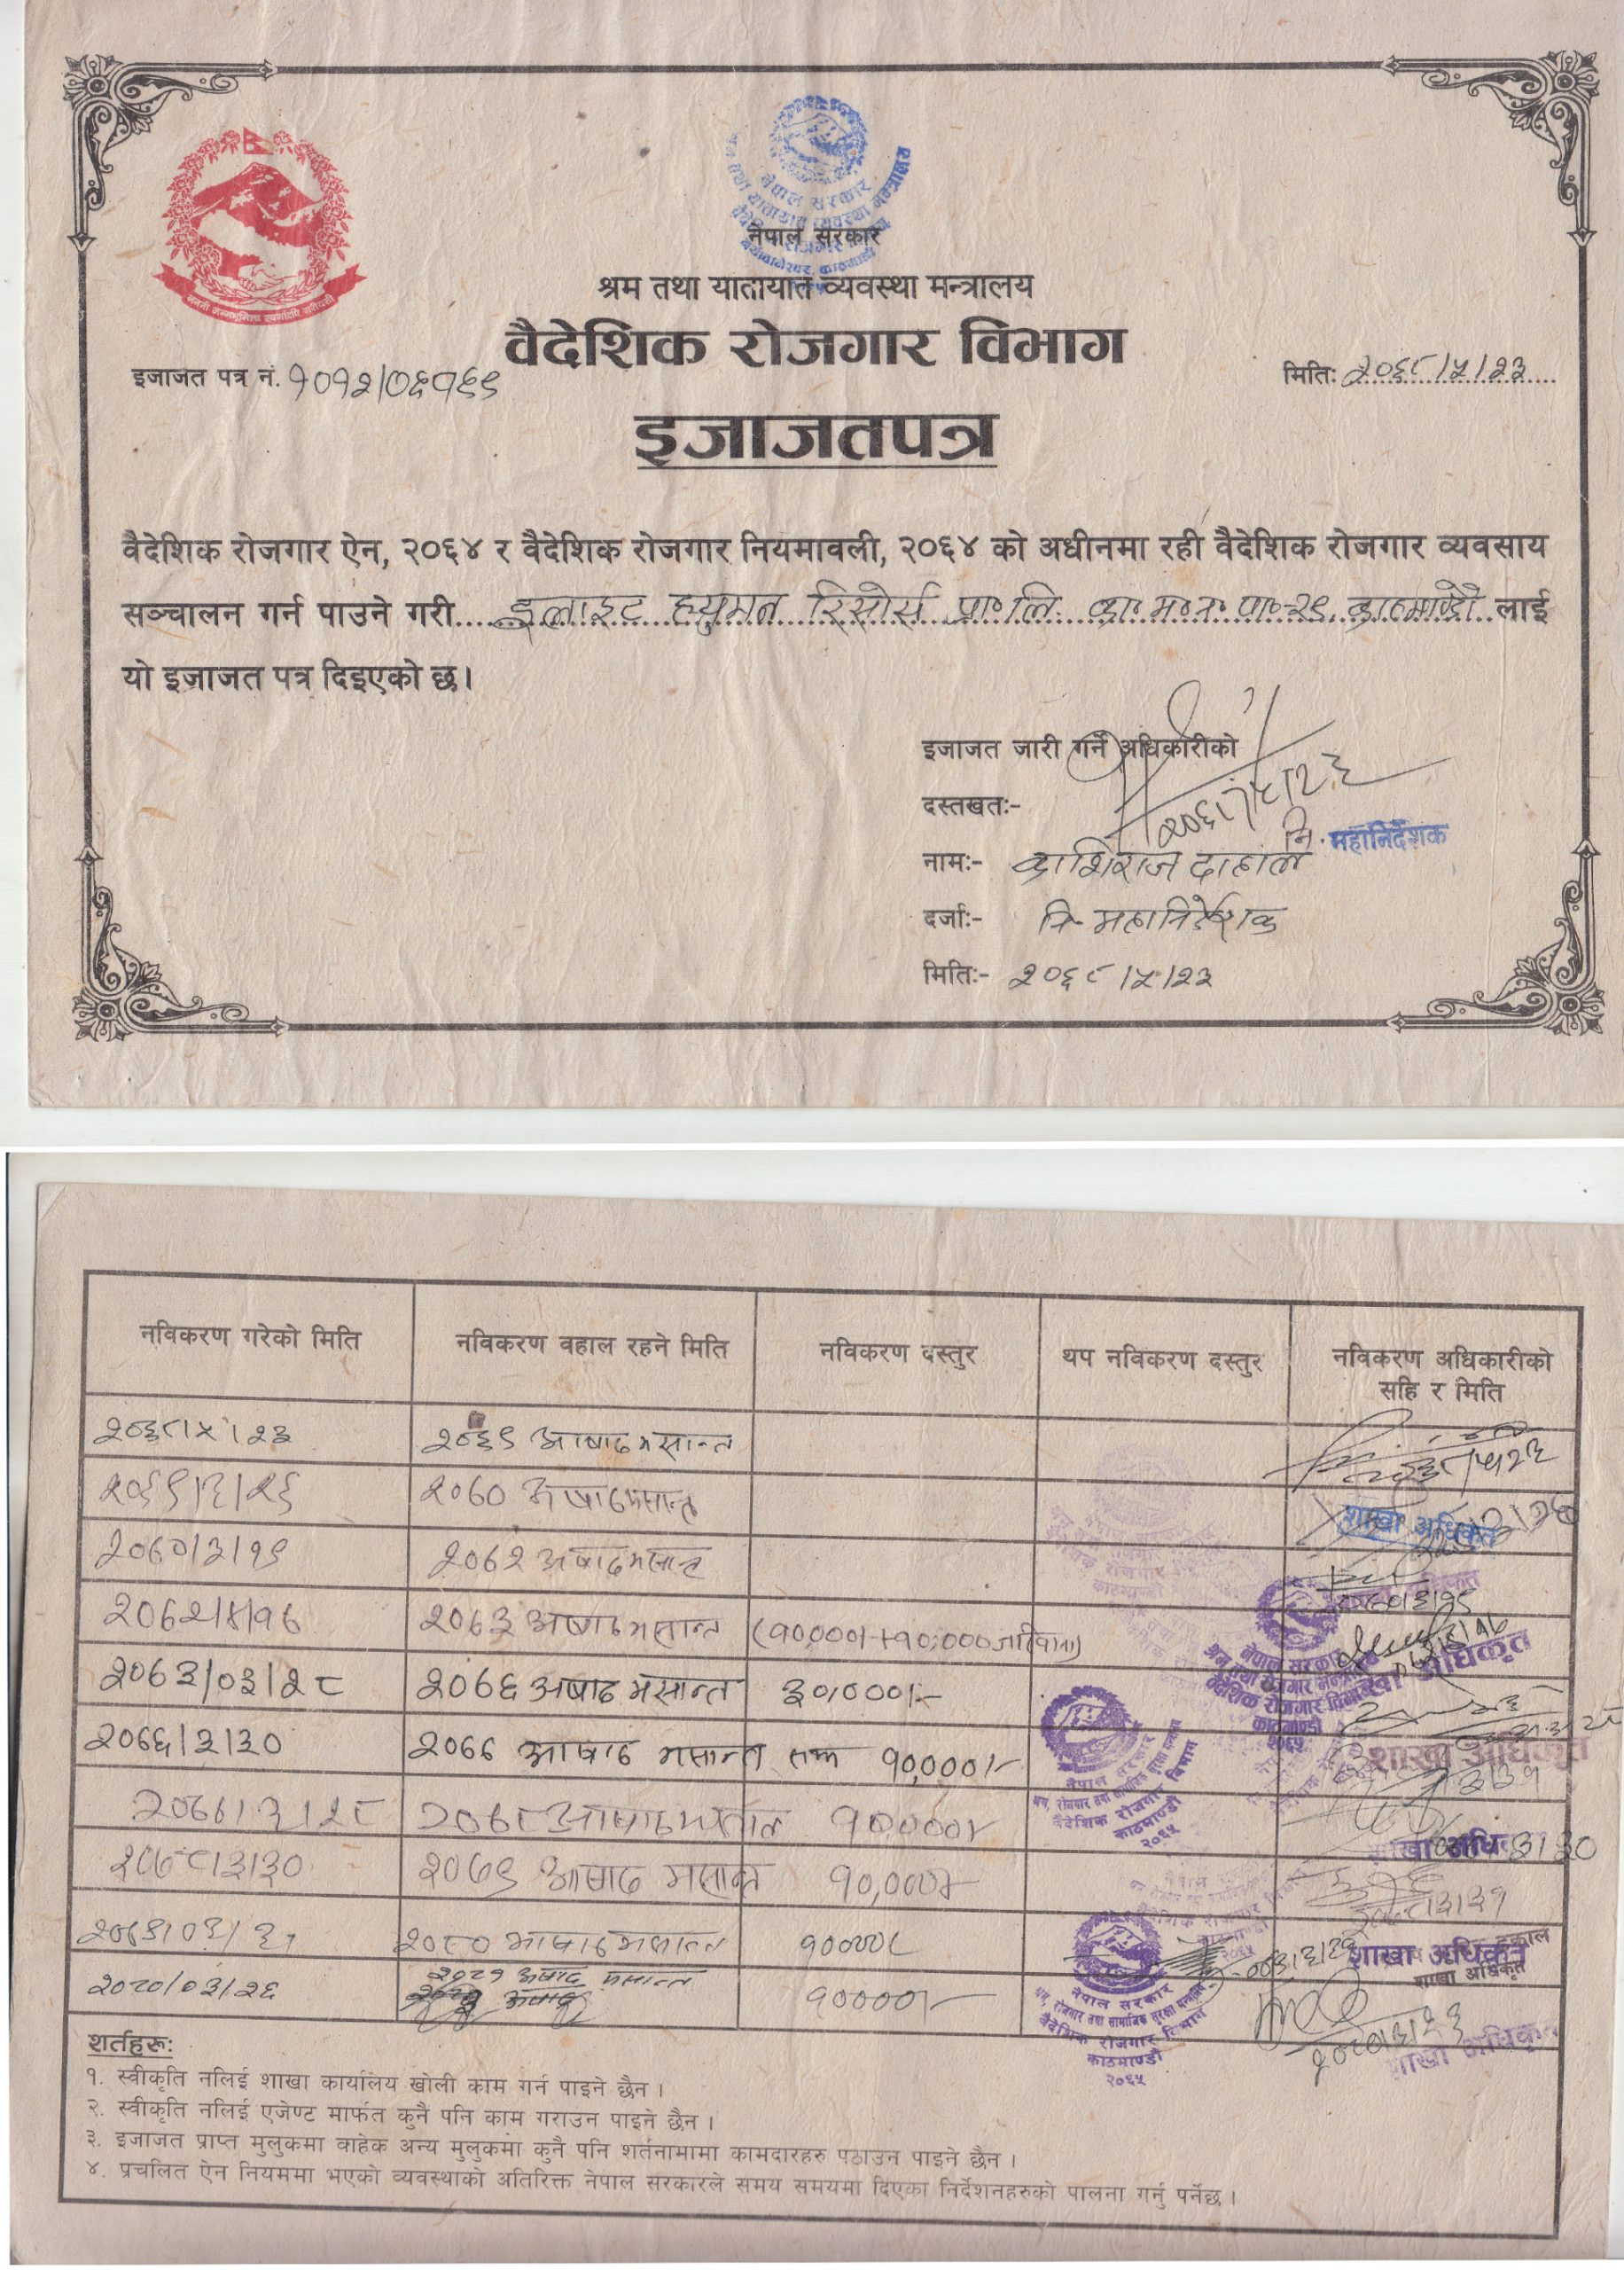 नेपाल सरकार
श्रम तथा यातायात व्यवस्था मन्त्रालय
वैदेशिक रोजगार विभाग
इजाजत पत्र नं. १०१२/०६९१६९
मितिः २०६८/५/२३
इजाजतपत्र
वैदेशिक रोजगार ऐन, २०६४ र वैदेशिक रोजगार नियमावली, २०६४ को अधीनमा रही वैदेशिक रोजगार व्यवसाय
सञ्चालन गर्न पाउने गरी इलाइट ह्युमन रिसोर्स प्रा॰ लि॰ का॰ म॰ न॰ पा॰ २९, काठमाण्डौ लाई
यो इजाजत पत्र दिइएको छ।
इजाजत जारी गर्ने अधिकारीको
दस्तखतः-
नि. महानिर्देशक
नामः- काशिराज दाहाल
दर्जाः- नि. महानिर्देशक
मितिः- २०६८/५/२३
नविकरण गरेको मिति नविकरण वहाल रहने मिति नविकरण दस्तुर थप नविकरण दस्तुर नविकरण अधिकारीको सहि र मिति
२०६८/५/२३ २०६९ आषाढ मसान्त
२०६९/३/२६ २०७० अषाढ मसान्त
शाखा अधिकृत
२०७०/३/१९ २०७२ अषाढ मसान्त
२०७२/४/१७ २०७३ अषाढ मसान्त
२०७३/०३/२८ २०७६ अषाढ मसान्त ३०,०००/-
२०७६/३/३० २०७७ आषाढ मसान्त सम्म १०,०००/-
शाखा अधिकृत
२०७७/३/२८ २०७८ आषाढ मसान्त १०,०००/-
२०७८/३/३० २०७९ आषाढ मसान्त १०,०००/-
२०८० आषाढ मसान्त
शाखा अधिकृत
शाखा अधिकृत
२०८०/०३/२६ २०८१ अषाढ मसान्त १००००/-
नेपाल सरकार
वैदेशिक रोजगार विभाग
काठमाण्डौ
२०६५
शाखा अधिकृत
शर्तहरूः
१. स्वीकृति नलिई शाखा कार्यालय खोली काम गर्न पाइने छैन ।
२. स्वीकृति नलिई एजेण्ट मार्फत कुनै पनि काम गराउन पाइने छैन ।
३. इजाजत प्राप्त मुलुकमा वाहेक अन्य मुलुकमा कुनै पनि शर्तनामामा कामदारहरु पठाउन पाइने छैन ।
४. प्रचलित ऐन नियममा भएको व्यवस्थाको अतिरिक्त नेपाल सरकारले समय समयमा दिएका निर्देशनहरुको पालना गर्नु पर्नेछ ।